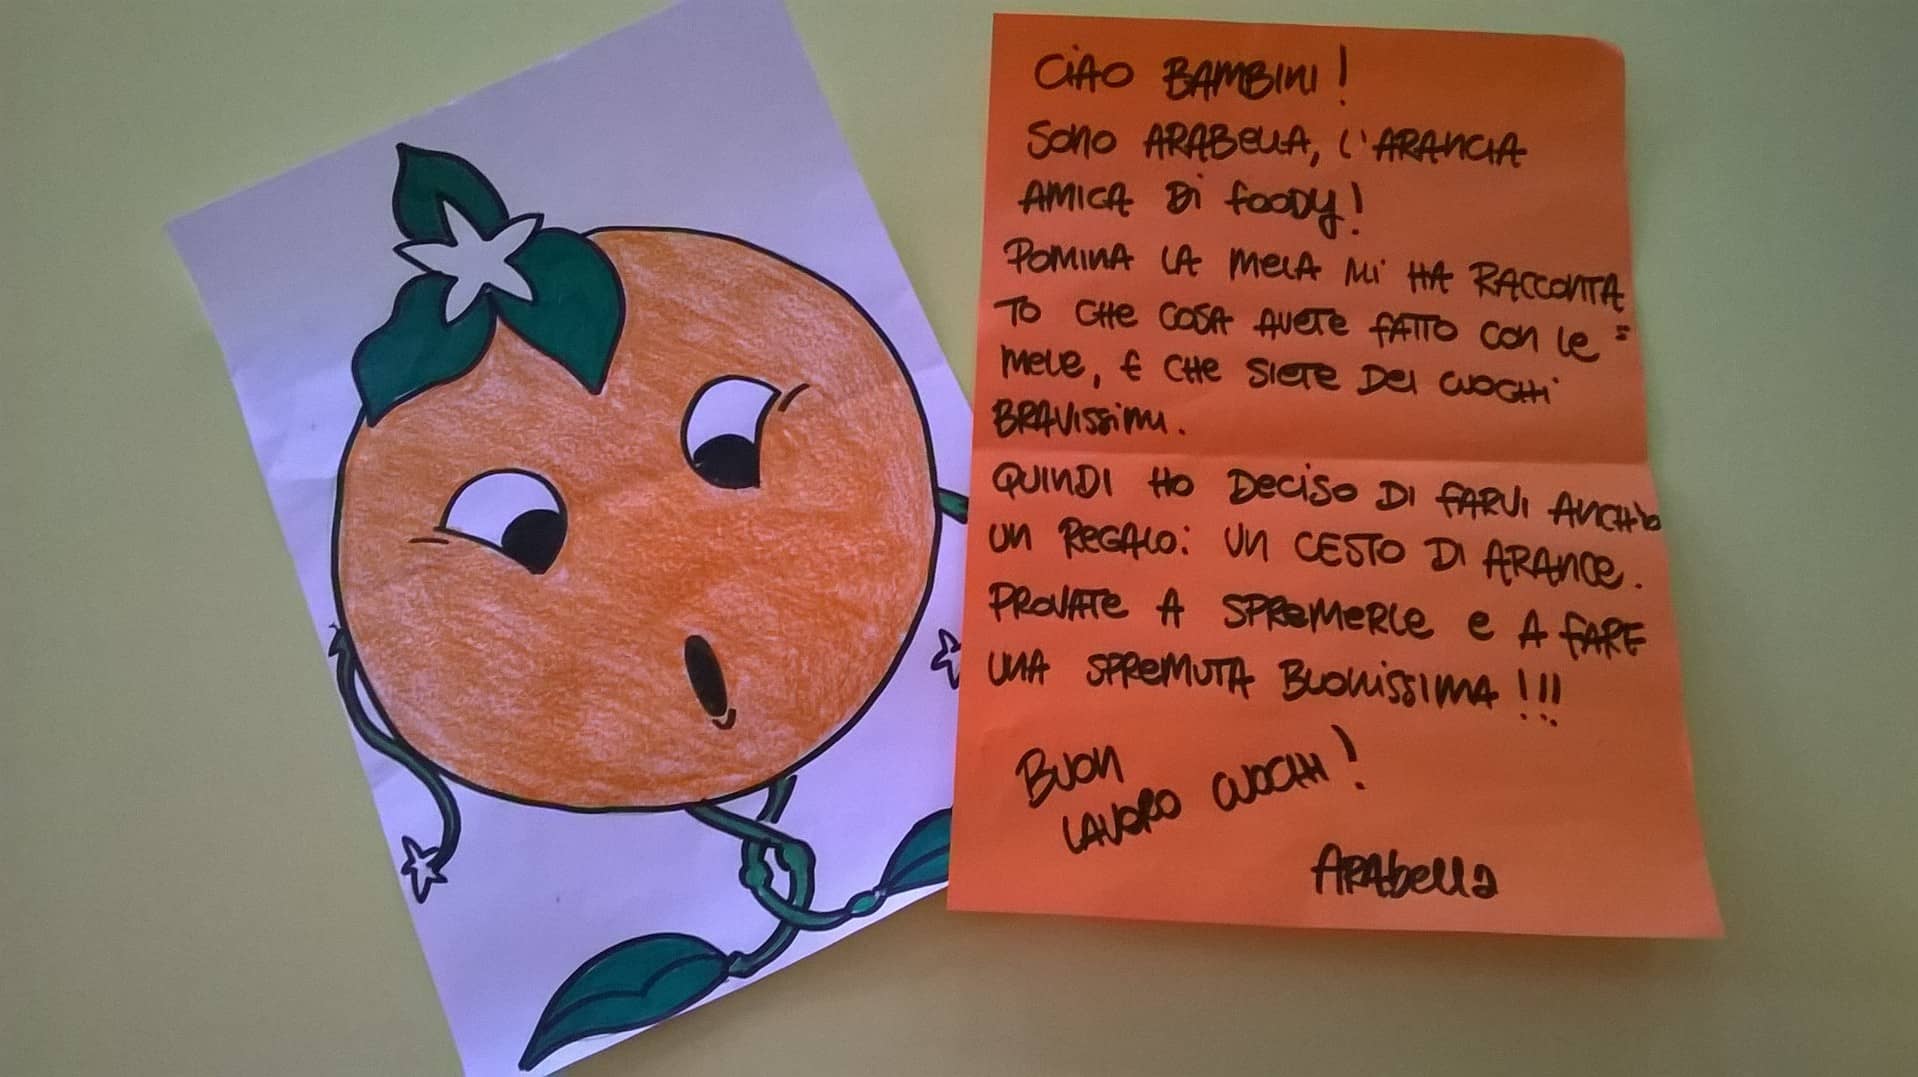 CIAO BAMBINI!
SONO ARABELLA, L'ARANCIA
AMICA DI FOODY!
POMINA LA MELA MI HA RACCONTA
TO CHE COSA AVETE FATTO CON LE =
MELE, E CHE SIETE DEI CUOCHI
BRAVISSIMI.
QUINDI HO DECISO DI FARVI ANCH'IO
UN REGALO: UN CESTO DI ARANCE.
PROVATE A SPREMERLE E A FARE
UNA SPREMUTA BUONISSIMA!!!
BUON
LAVORO CUOCHI!
ARAbella